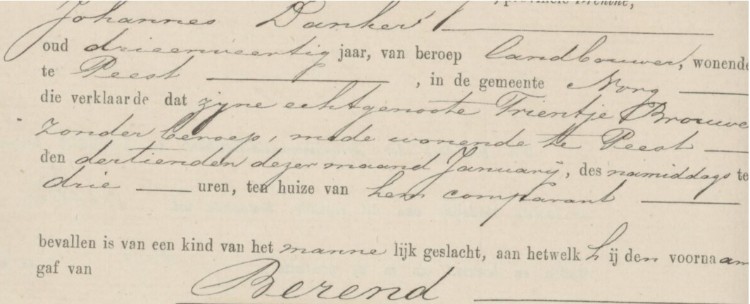 , provincie Drenthe,
Johannes Dankert
oud drieenveertig jaar, van beroep landbouwer, wonende
te Peest , in de gemeente Norg
die verklaarde dat zyne echtgenoote Trientje Brouwe
zonder beroep, mede wonende te Peest
den dertienden dezer maand Januarij, des namiddags te
drie uren, ten huize van hem comparant
bevallen is van een kind van het mannelijk geslacht, aan hetwelk hij den voornaam
gaf van Berend